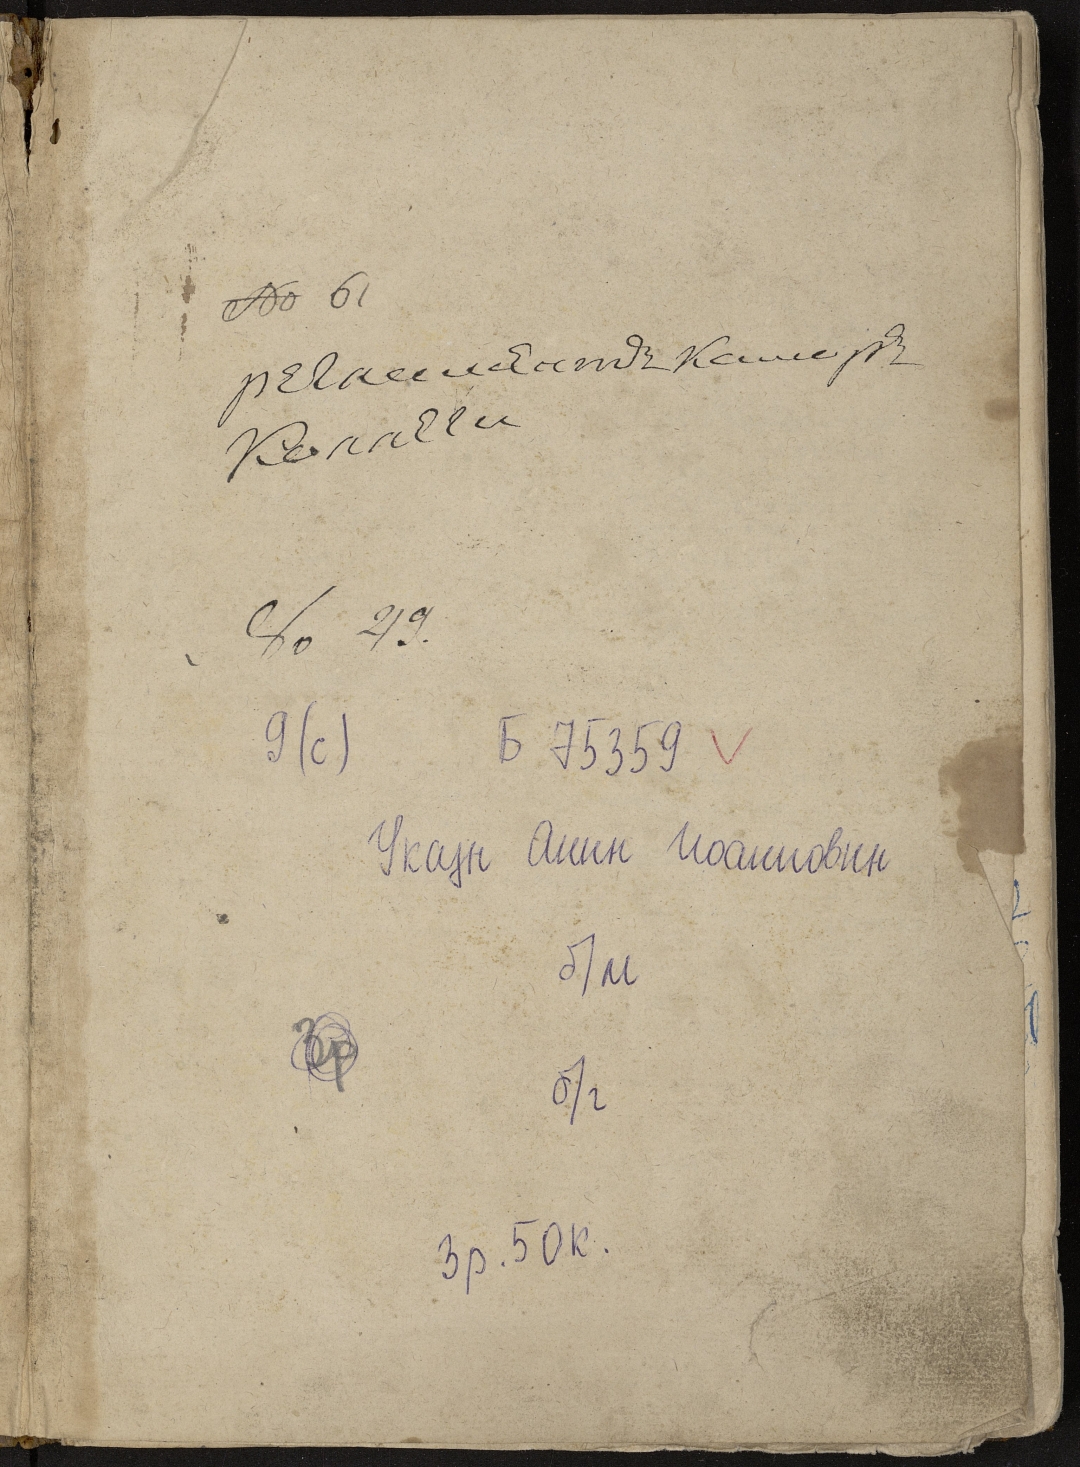 № 61
регламентъ каморъ
Коллегии
№ 49.
9(с) Б 75359
Указы Анны Иоанновны
б/м
3р
б/г
3р. 50к.